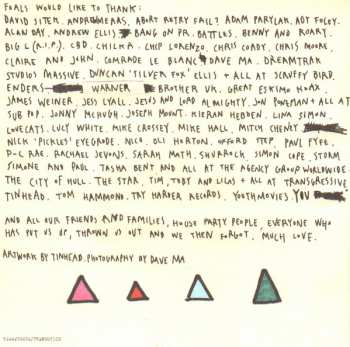 FOALS WOULD LIKE TO THANK:
DAVID SITEK, ANDREW MEARS, ABORT RETRY FAIL? ADAM PARYLAK, ADT FOLEY.
ALAN DAY, ANDREW ELLIS BANG ON PR. BATTLES. BENNY AND ROARY.
BIG L (R.I.P.) CBD. CHILHA. CHIP LORENZO. CHRIS COADY. CHRIS MOORE,
CLAIRE AND JOHN. COMRADE LE BLANC, DAVE MA. DREAMTRAK
STUDIOS MASSIVE. DUNCAN 'SILVER FOX' ELLIS + ALL AT SCRUFFY BIRD.
ENDERS WARNER BROTHER UK. GREAT ESKIMO HOAX.
JAMES WEINER, JESS LYALL. JESUS AND LORD ALMIGHTY. JON POWEMAN + ALL AT
SUB POP. JONNY MCHUGH. JOSEPH MOUNT. KIERAN HEBDEN. LINA SIMON.
LOVECATS. LUCY WHITE. MIKE CROSSEY. MIKE HALL. MITCH CHENEY
NICK 'PICKLES' EYEGRADE. NICO. OLI HORTON. OFFORD STEP. PAUL FYFE.
P-C RAE. RACHAEL JEVONS. SARAH MOTH. SHURROCK. SIMON COPE. STORM
SIMONE AND PAUL. TASHA BENT AND ALL AT THE AGENCY GROUP WORLDWIDE.
THE CITY OF HULL. THE STAR. TIM, TOBY AND LILAS + ALL AT TRANSGRESSIVE
TINHEAD. TOM HAMMOND. TRY HARDER RECORDS. YOUTHMOVIES. YOU
AND ALL OUR FRIENDS AND FAMILIES, HOUSE PARTY PEOPLE, EVERYONE WHO
HAS PUT US UP, THROWN US OUT AND WE THEN FORGOT. MUCH LOVE.
ARTWORK BY TINHEAD. PHOTOGRAPHY BY DAVE MA